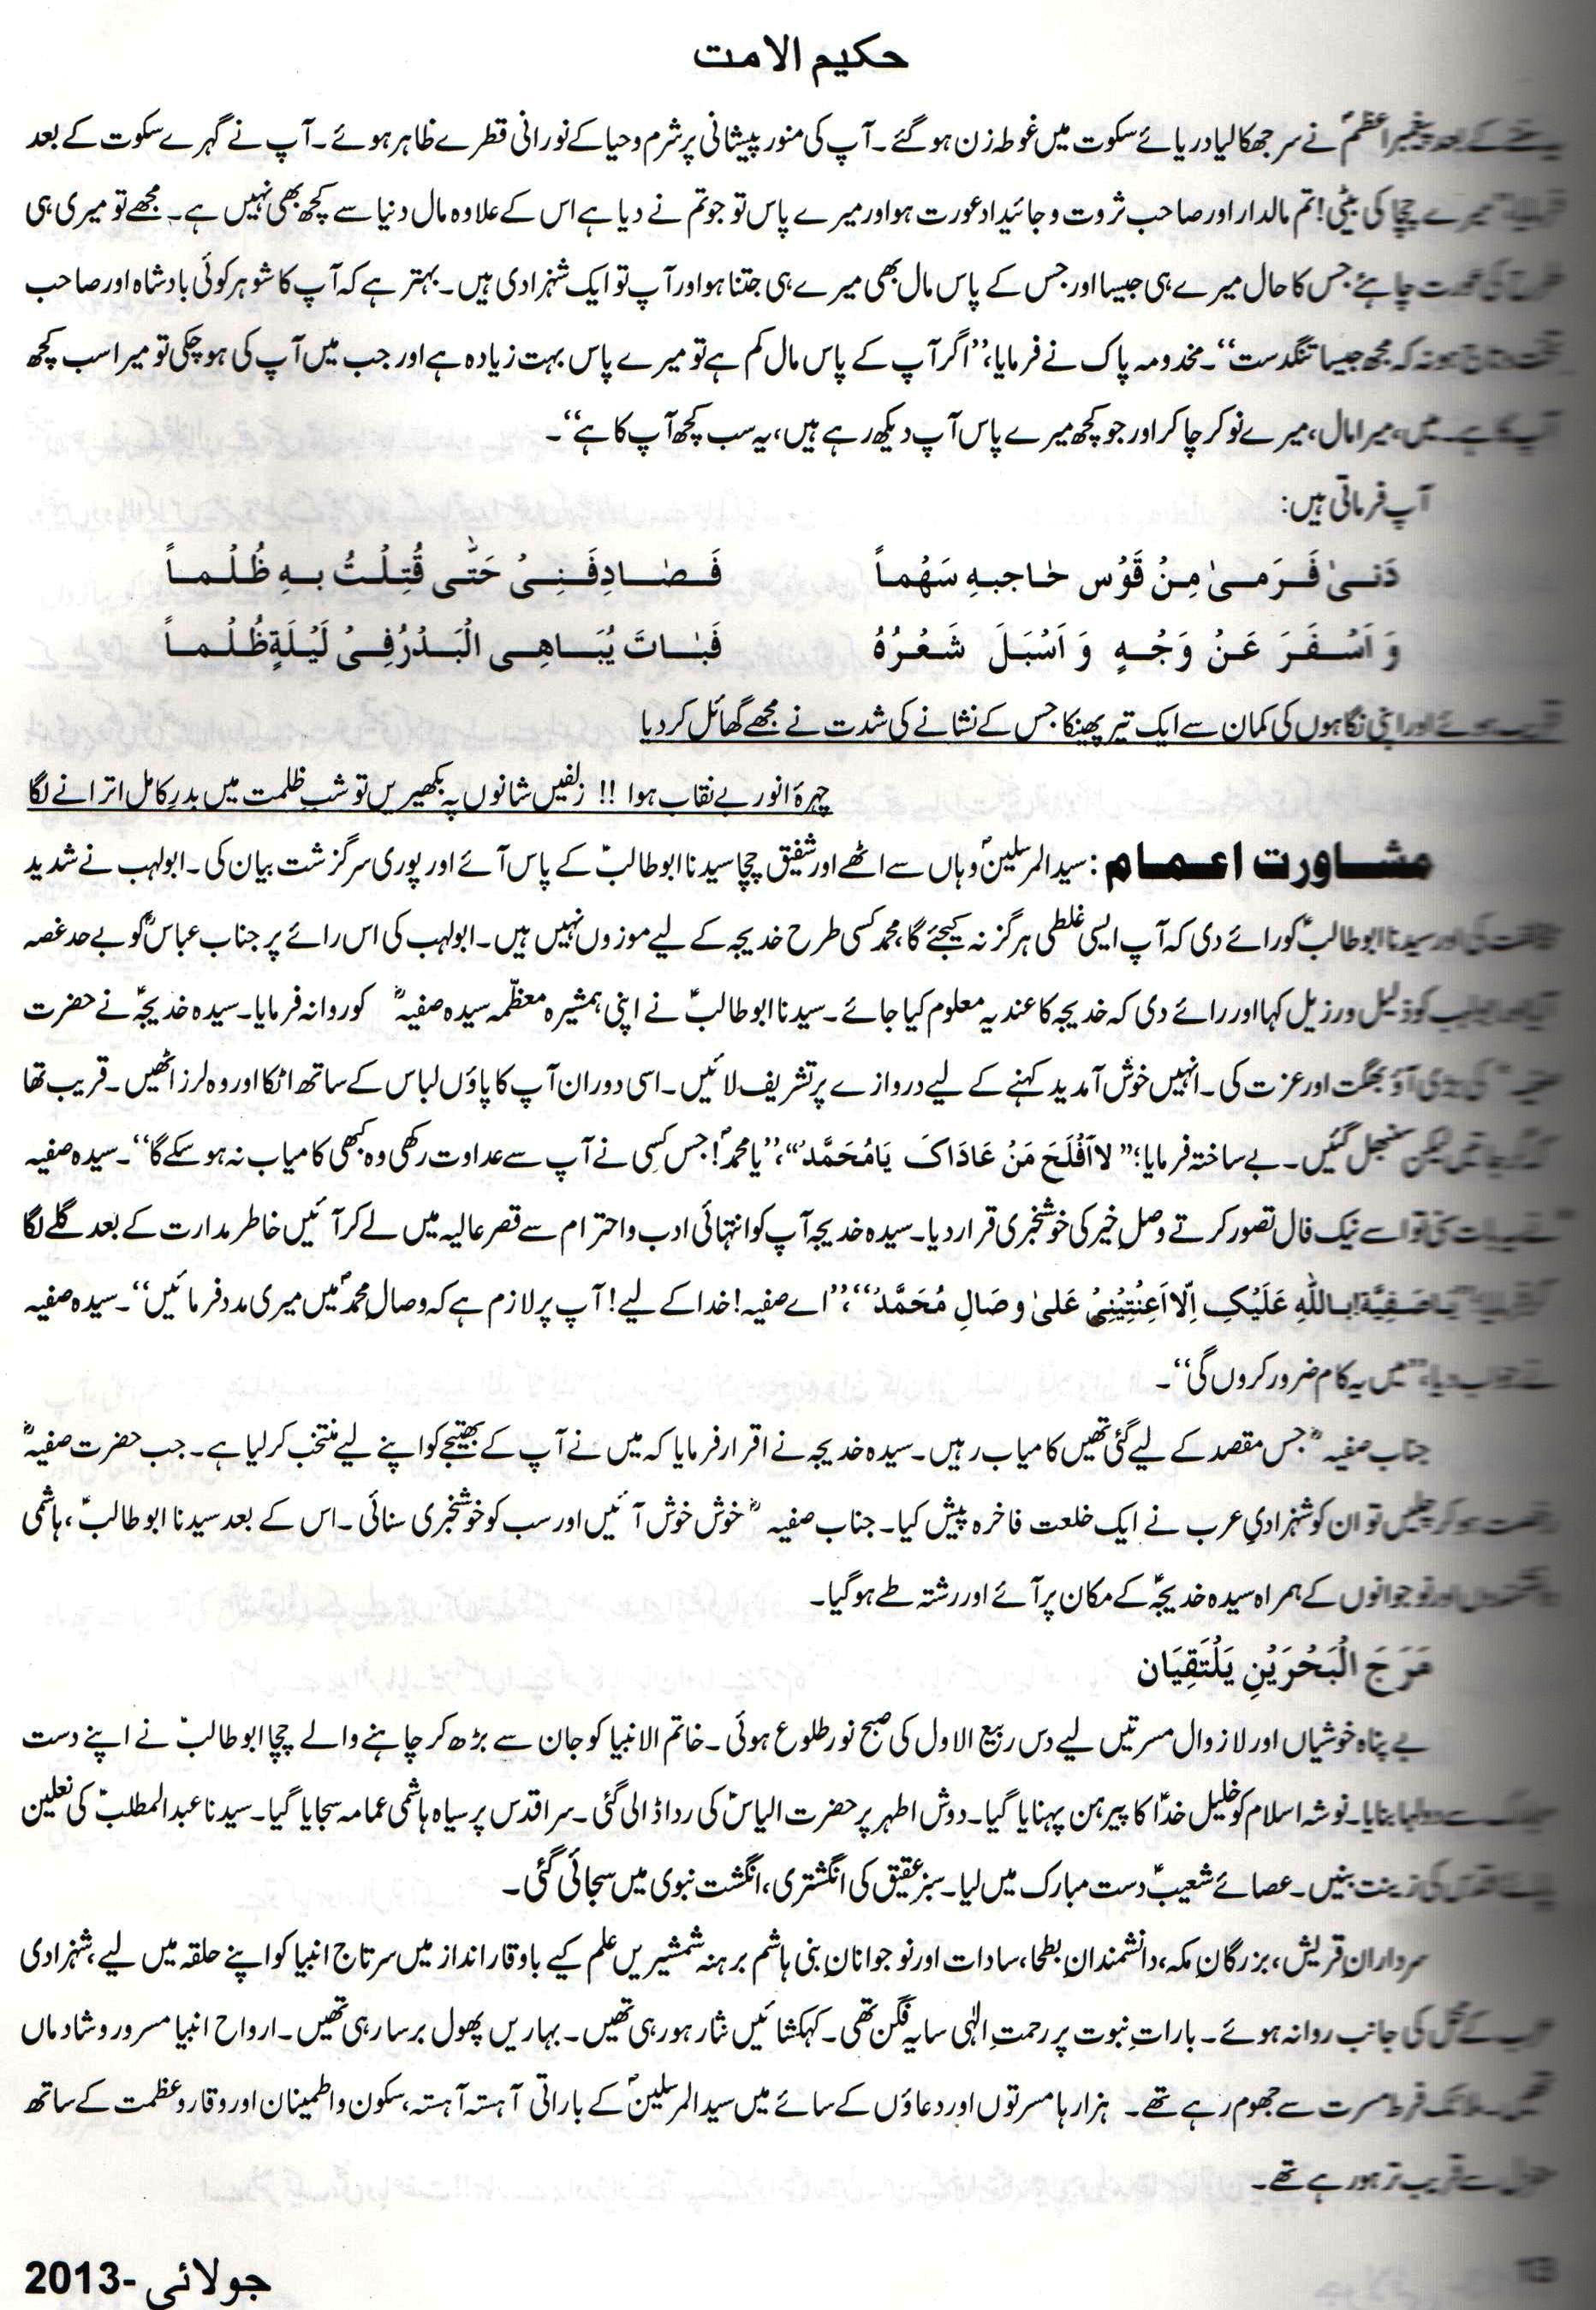 حکیم الامت
پیغمبر اعظمؐ نے سر جھکا لیا دریائے سکوت میں غوطہ زن ہو گئے۔ آپ کی منور پیشانی پر شرم و حیا کے نورانی قطرے ظاہر ہوئے۔ آپ نے گہرے سکوت کے بعد
میرے چچا کی بیٹی! تم مالدار اور صاحب ثروت و جائیداد عورت ہو اور میرے پاس تو جو تم نے دیا ہے اس کے علاوہ مال دنیا سے کچھ بھی نہیں ہے۔ مجھے تو میری ہی
کی عورت چاہئے جس کا حال میرے ہی جیسا اور جس کے پاس مال بھی میرے ہی جتنا ہو اور آپ تو ایک شہزادی ہیں۔ بہتر ہے کہ آپ کا شوہر کوئی بادشاہ اور صاحب
ہو نہ کہ مجھ جیسا تنگدست‘‘۔ مخدومہ پاک نے فرمایا،’’اگر آپ کے پاس مال کم ہے تو میرے پاس بہت زیادہ ہے اور جب میں آپ کی ہو چکی تو میرا سب کچھ
میں، میرا مال، میرے نوکر چاکر اور جو کچھ میرے پاس آپ دیکھ رہے ہیں، یہ سب کچھ آپ کا ہے‘‘۔
آپ فرماتی ہیں:
دَنیٰ فَرَمیٰ مِنْ قَوْسِ حٰاجبهِ سَهْماً فَصٰادِفَنِیْ حَتّٰی قُتِلْتُ بهِ ظُلْماً
وَ اَسْفَرَ عَنْ وَجْهٍ وَ اَسْبَلَ شَعْرُهُ فَبٰاتَ یُبَاهِی الْبَدْرُ فِیْ لَیْلَةٍ ظُلْماً
ہوئے اور اپنی نگاہوں کی کمان سے ایک تیر پھینکا جس کے نشانے کی شدت نے مجھے گھائل کر دیا
چہرۂ انور بے نقاب ہوا !! زلفیں شانوں پہ بکھیریں تو شبِ ظلمت میں بدرِ کامل اترانے لگا
مشاورت اعمام: سید المرسلینؐ وہاں سے اٹھے اور شفیق چچا سیدنا ابوطالبؑ کے پاس آئے اور پوری سرگزشت بیان کی۔ ابولہب نے شدید
کی اور سیدنا ابوطالبؑ کو رائے دی کہ آپ ایسی غلطی ہرگز نہ کیجئے گا، محمد کسی طرح خدیجہ کے لیے موزوں نہیں ہیں۔ ابولہب کی اس رائے پر جناب عباسؓ کو بے حد غصہ
کو ذلیل ورزیل کہا اور رائے دی کہ خدیجہ کا عندیہ معلوم کیا جائے۔ سیدنا ابوطالبؑ نے اپنی ہمشیرہ معظّمہ سیدہ صفیہؓ کو روانہ فرمایا۔ سیدہ خدیجہؑ نے حضرت
کی بڑی آؤ بھگت اور عزت کی۔ انہیں خوش آمدید کہنے کے لیے دروازے پر تشریف لائیں۔ اسی دوران آپ کا پاؤں لباس کے ساتھ اٹکا اور وہ لرز اٹھیں۔ قریب تھا
لیکن سنبھل گئیں۔ بے ساختہ فرمایا؛’’لا اَفْلَحَ مَنْ عَادَاکَ یَامُحَمَّدُ‘‘،’’یا محمدؐ! جس کسی نے آپ سے عداوت رکھی وہ کبھی کامیاب نہ ہو سکے گا‘‘۔ سیدہ صفیہ
تو اسے نیک فال تصور کرتے وصلِ خیر کی خوشخبری قرار دیا۔ سیدہ خدیجہ آپ کو انتہائی ادب و احترام سے قصر عالیہ میں لے کر آئیں خاطر مدارت کے بعد گلے لگا
یَا صَفِیَّة! بِاللّٰهِ عَلَیْکِ اِلّا اَعِنْتِیْنِیْ عَلیٰ وِصَالِ مُحَمَّدُ‘‘،’’اے صفیہ! خدا کے لیے! آپ پر لازم ہے کہ وصال محمدؐ میں میری مدد فرمائیں‘‘۔ سیدہ صفیہ
نے جواب دیا،’’میں یہ کام ضرور کروں گی‘‘۔
جناب صفیہؓ جس مقصد کے لیے گئی تھیں کامیاب رہیں۔ سیدہ خدیجہ نے اقرار فرمایا کہ میں نے آپ کے بھتیجے کو اپنے لیے منتخب کر لیا ہے۔ جب حضرت صفیہؓ
ہو کر چلیں تو ان کو شہزادیِ عرب نے ایک خلعت فاخرہ پیش کیا۔ جناب صفیہؓ خوش خوش آئیں اور سب کو خوشخبری سنائی۔ اس کے بعد سیدنا ابوطالبؑ، ہاشمی
اور نوجوانوں کے ہمراہ سیدہ خدیجہؑ کے مکان پر آئے اور رشتہ طے ہو گیا۔
مَرَجَ الْبَحْرَیْنِ یَلْتَقِیَان
بے پناہ خوشیاں اور لازوال مسرتیں لیے دس ربیع الاول کی صبح نور طلوع ہوئی۔ خاتم الانبیا کو جان سے بڑھ کر چاہنے والے چچا ابوطالبؑ نے اپنے دست
سے دولہا بنایا۔ نوشہ اسلام کو خلیل خداؑ کا پیرہن پہنایا گیا۔ دوش اطہر پر حضرت الیاسؑ کی ردا ڈالی گئی۔ سر اقدس پر سیاہ ہاشمی عمامہ سجایا گیا۔ سیدنا عبدالمطلبؑ کی نعلین
کی زینت بنیں۔ عصائے شعیبؑ دست مبارک میں لیا۔ سبز عقیق کی انگشتری، انگشت نبوی میں سجائی گئی۔
سردارانِ قریش، بزرگانِ مکہ، دانشمندانِ بطحا، سادات اور نوجوانانِ بنی ہاشم برہنہ شمشیریں علم کیے باوقار انداز میں سرتاج انبیا کو اپنے حلقہ میں لیے، شہزادی
کے محل کی جانب روانہ ہوئے۔ باراتِ نبوت پر رحمتِ الٰہی سایہ فگن تھی۔ کہکشائیں نثار ہو رہی تھیں۔ بہاریں پھول برسا رہی تھیں۔ ارواح انبیا مسرور و شادماں
فرط مسرت سے جھوم رہے تھے۔ ہزارہا مسرتوں اور دعاؤں کے سائے میں سید المرسلینؐ کے باراتی آہستہ آہستہ، سکون و اطمینان اور وقار و عظمت کے ساتھ
سے قریب تر ہو رہے تھے۔
جولائی -2013